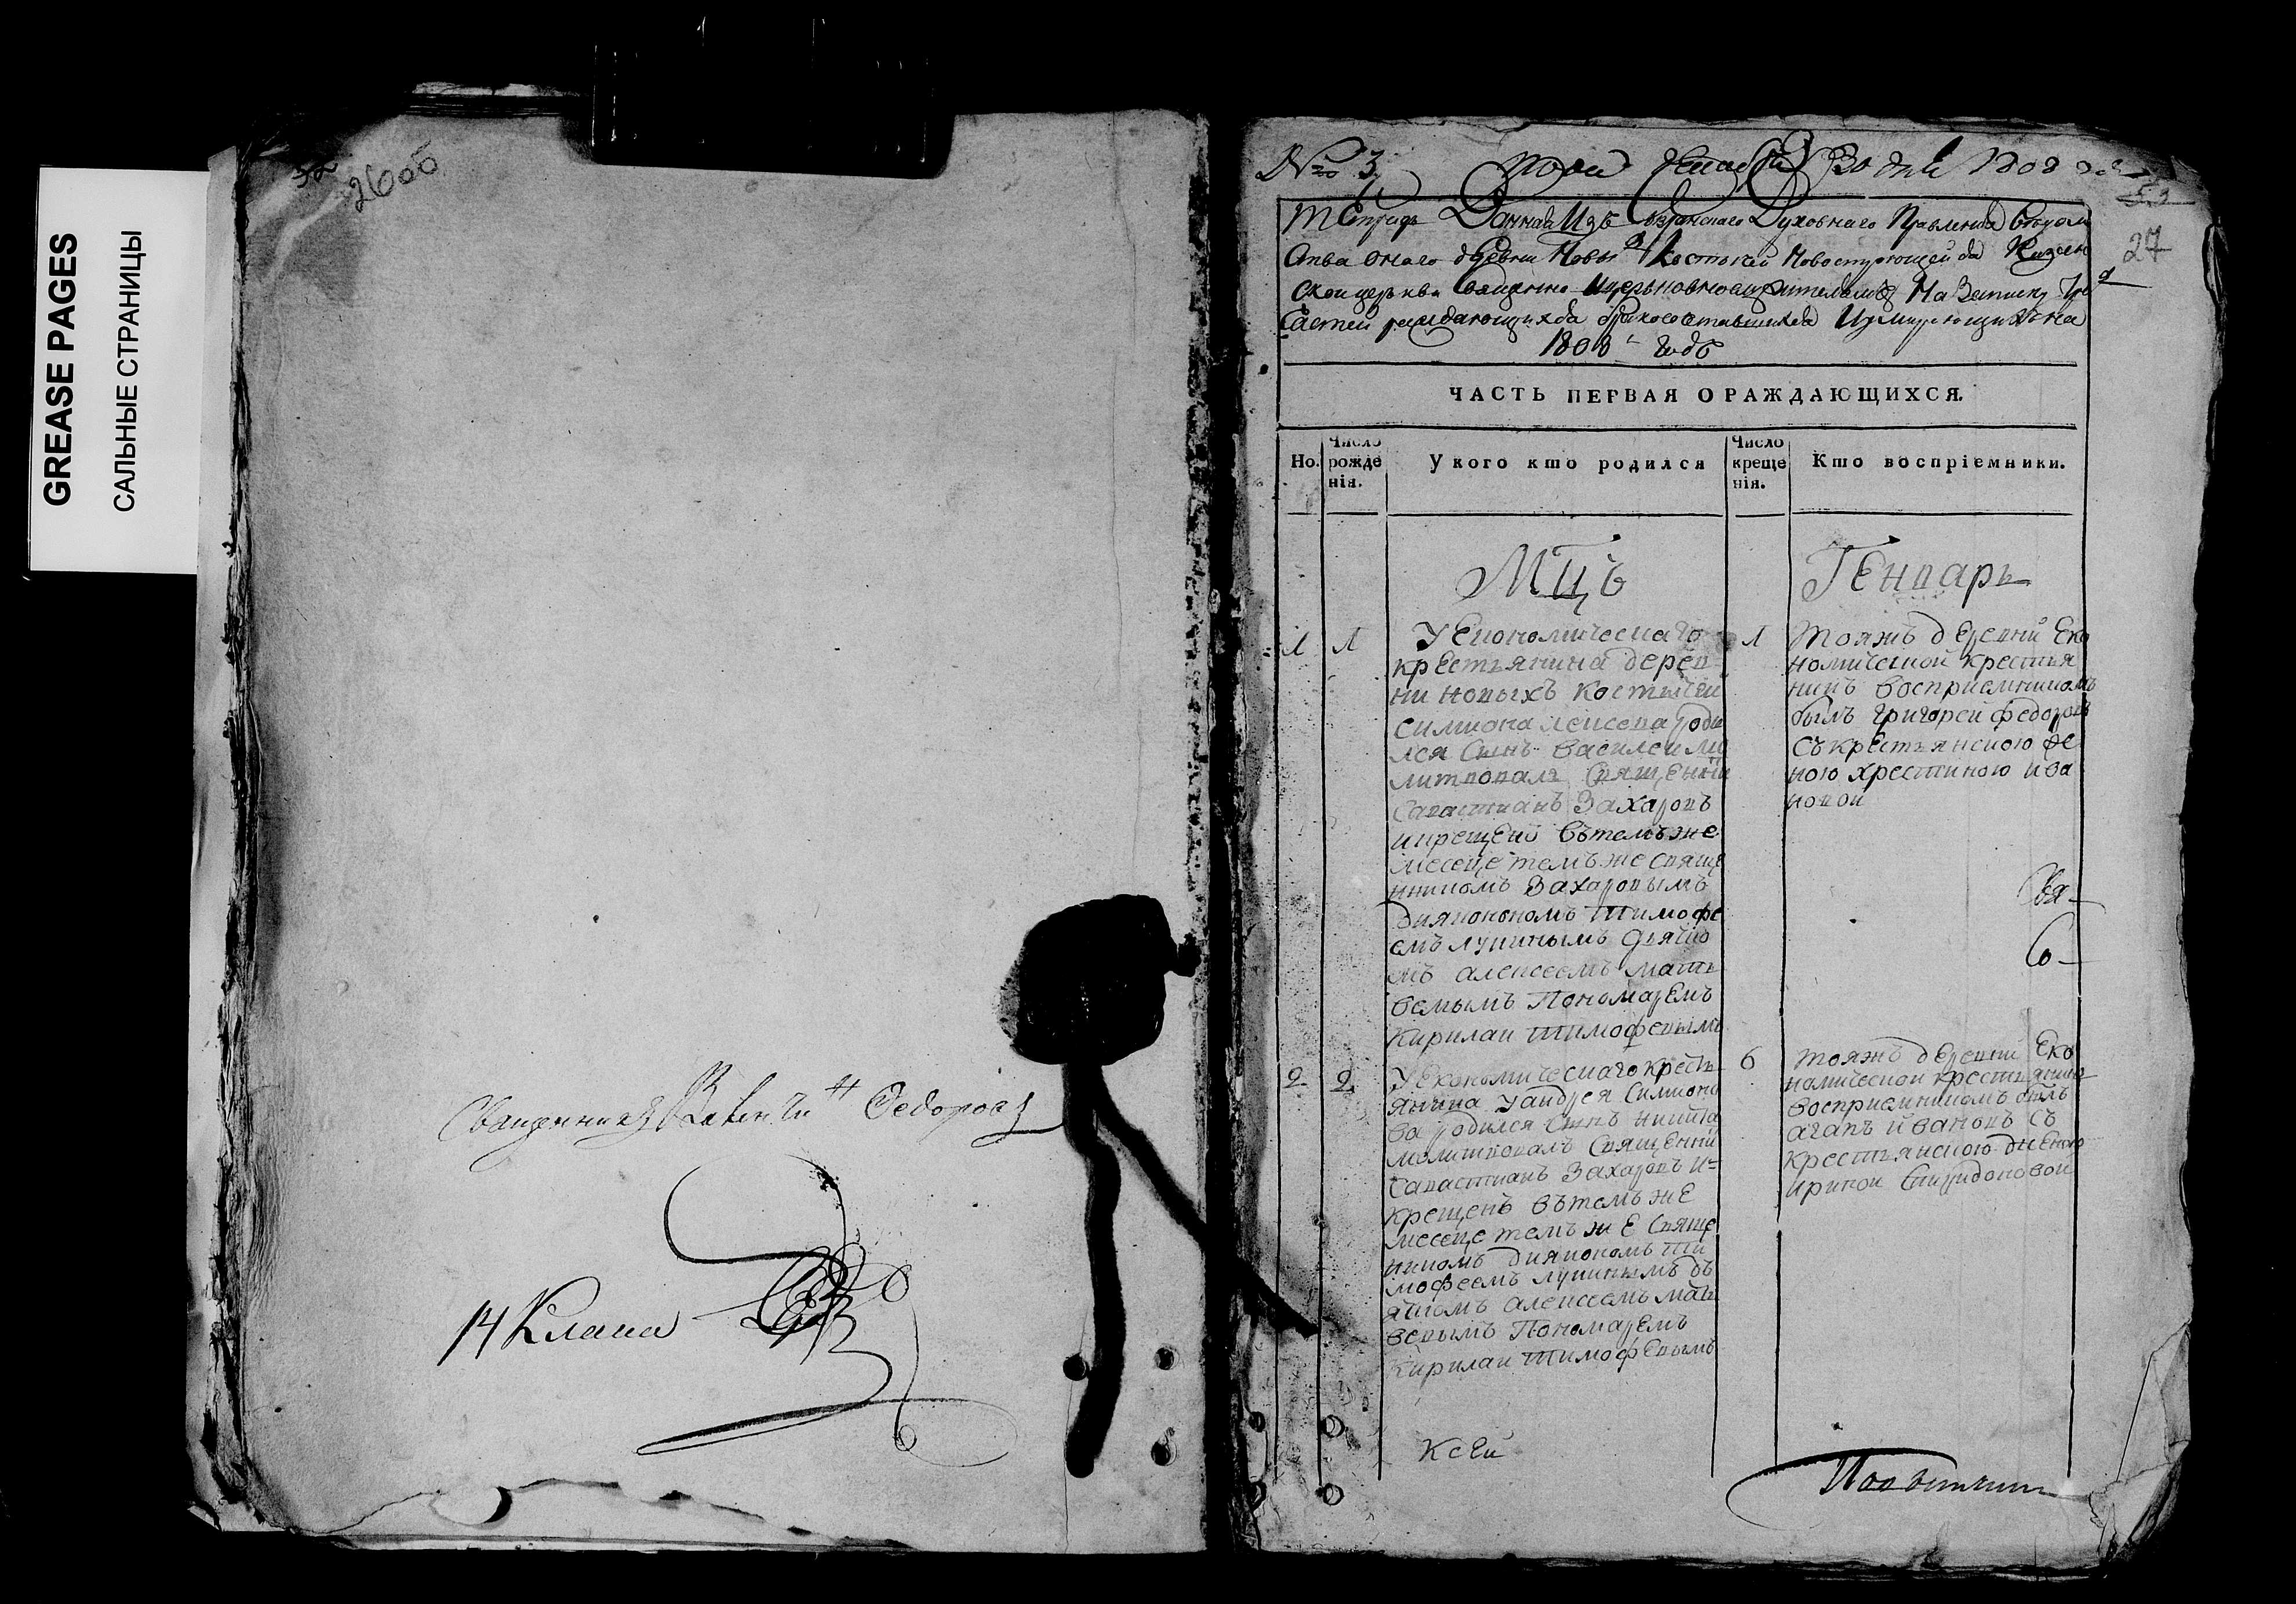 GREASE PAGES
САЛЬНЫЕ СТРАНИЦЫ
26об
Священникъ Федоровъ
14 Класа
№ 3
1808
27
Тетрадь Данная Изъ Духовнаго Правленія
деревни Новыхъ Костычей
церкви На Записку
раждающихся бракосочетавшихся Иумирающихъ на
1808 годъ
ЧАСТЬ ПЕРВАЯ О РАЖДАЮЩИХСЯ.
Но.
Число рожденія.
У кого кто родился
Число крещенія.
Кто воспріемники.
Мцъ Генварь
1 1
У Економическаго
крестьянина дерев
ни новыхъ костычеи
симиона леисева роди
лся сынъ василеи мо
литвовалъ священни
савастианъ Захаровъ
икрещенъ вътемъже
месеце темъже свяще
нникомъ Захаровымъ
дияконномъ Тимофе
емъ лукинымъ дьячко
мъ алексеемъ матв
веевымъ Пономаремъ
Кирилаи Тимофевымъ
1
Тояжъ деревни Еко
номическои крестья
нинъ восприемникомъ
былъ григореи федоровъ
съкрестьянскою же
ною хрестиною ива
новои
Свя-
Со-
2 2
У Економическаго кресть
янина Уандрея Симионо
ва родился сынъ никита
молитвовалъ Священни
савастианъ Захаровъ и=
крещенъ вътемъже
месеце темъже Свяще
нникомъ дияконом Ти
мофеемъ лукинымъ дь
ячкомъ алексеемъ мать
вевымъ Пономаремъ
Кирилаи Тимофевымъ
6
тояжъ деревни Еко
номическои крестьянинъ
восприемникомъ былъ
агапъ ивановъ съ
крестьянскою женою
ириной Спиридоновой
Ксеи